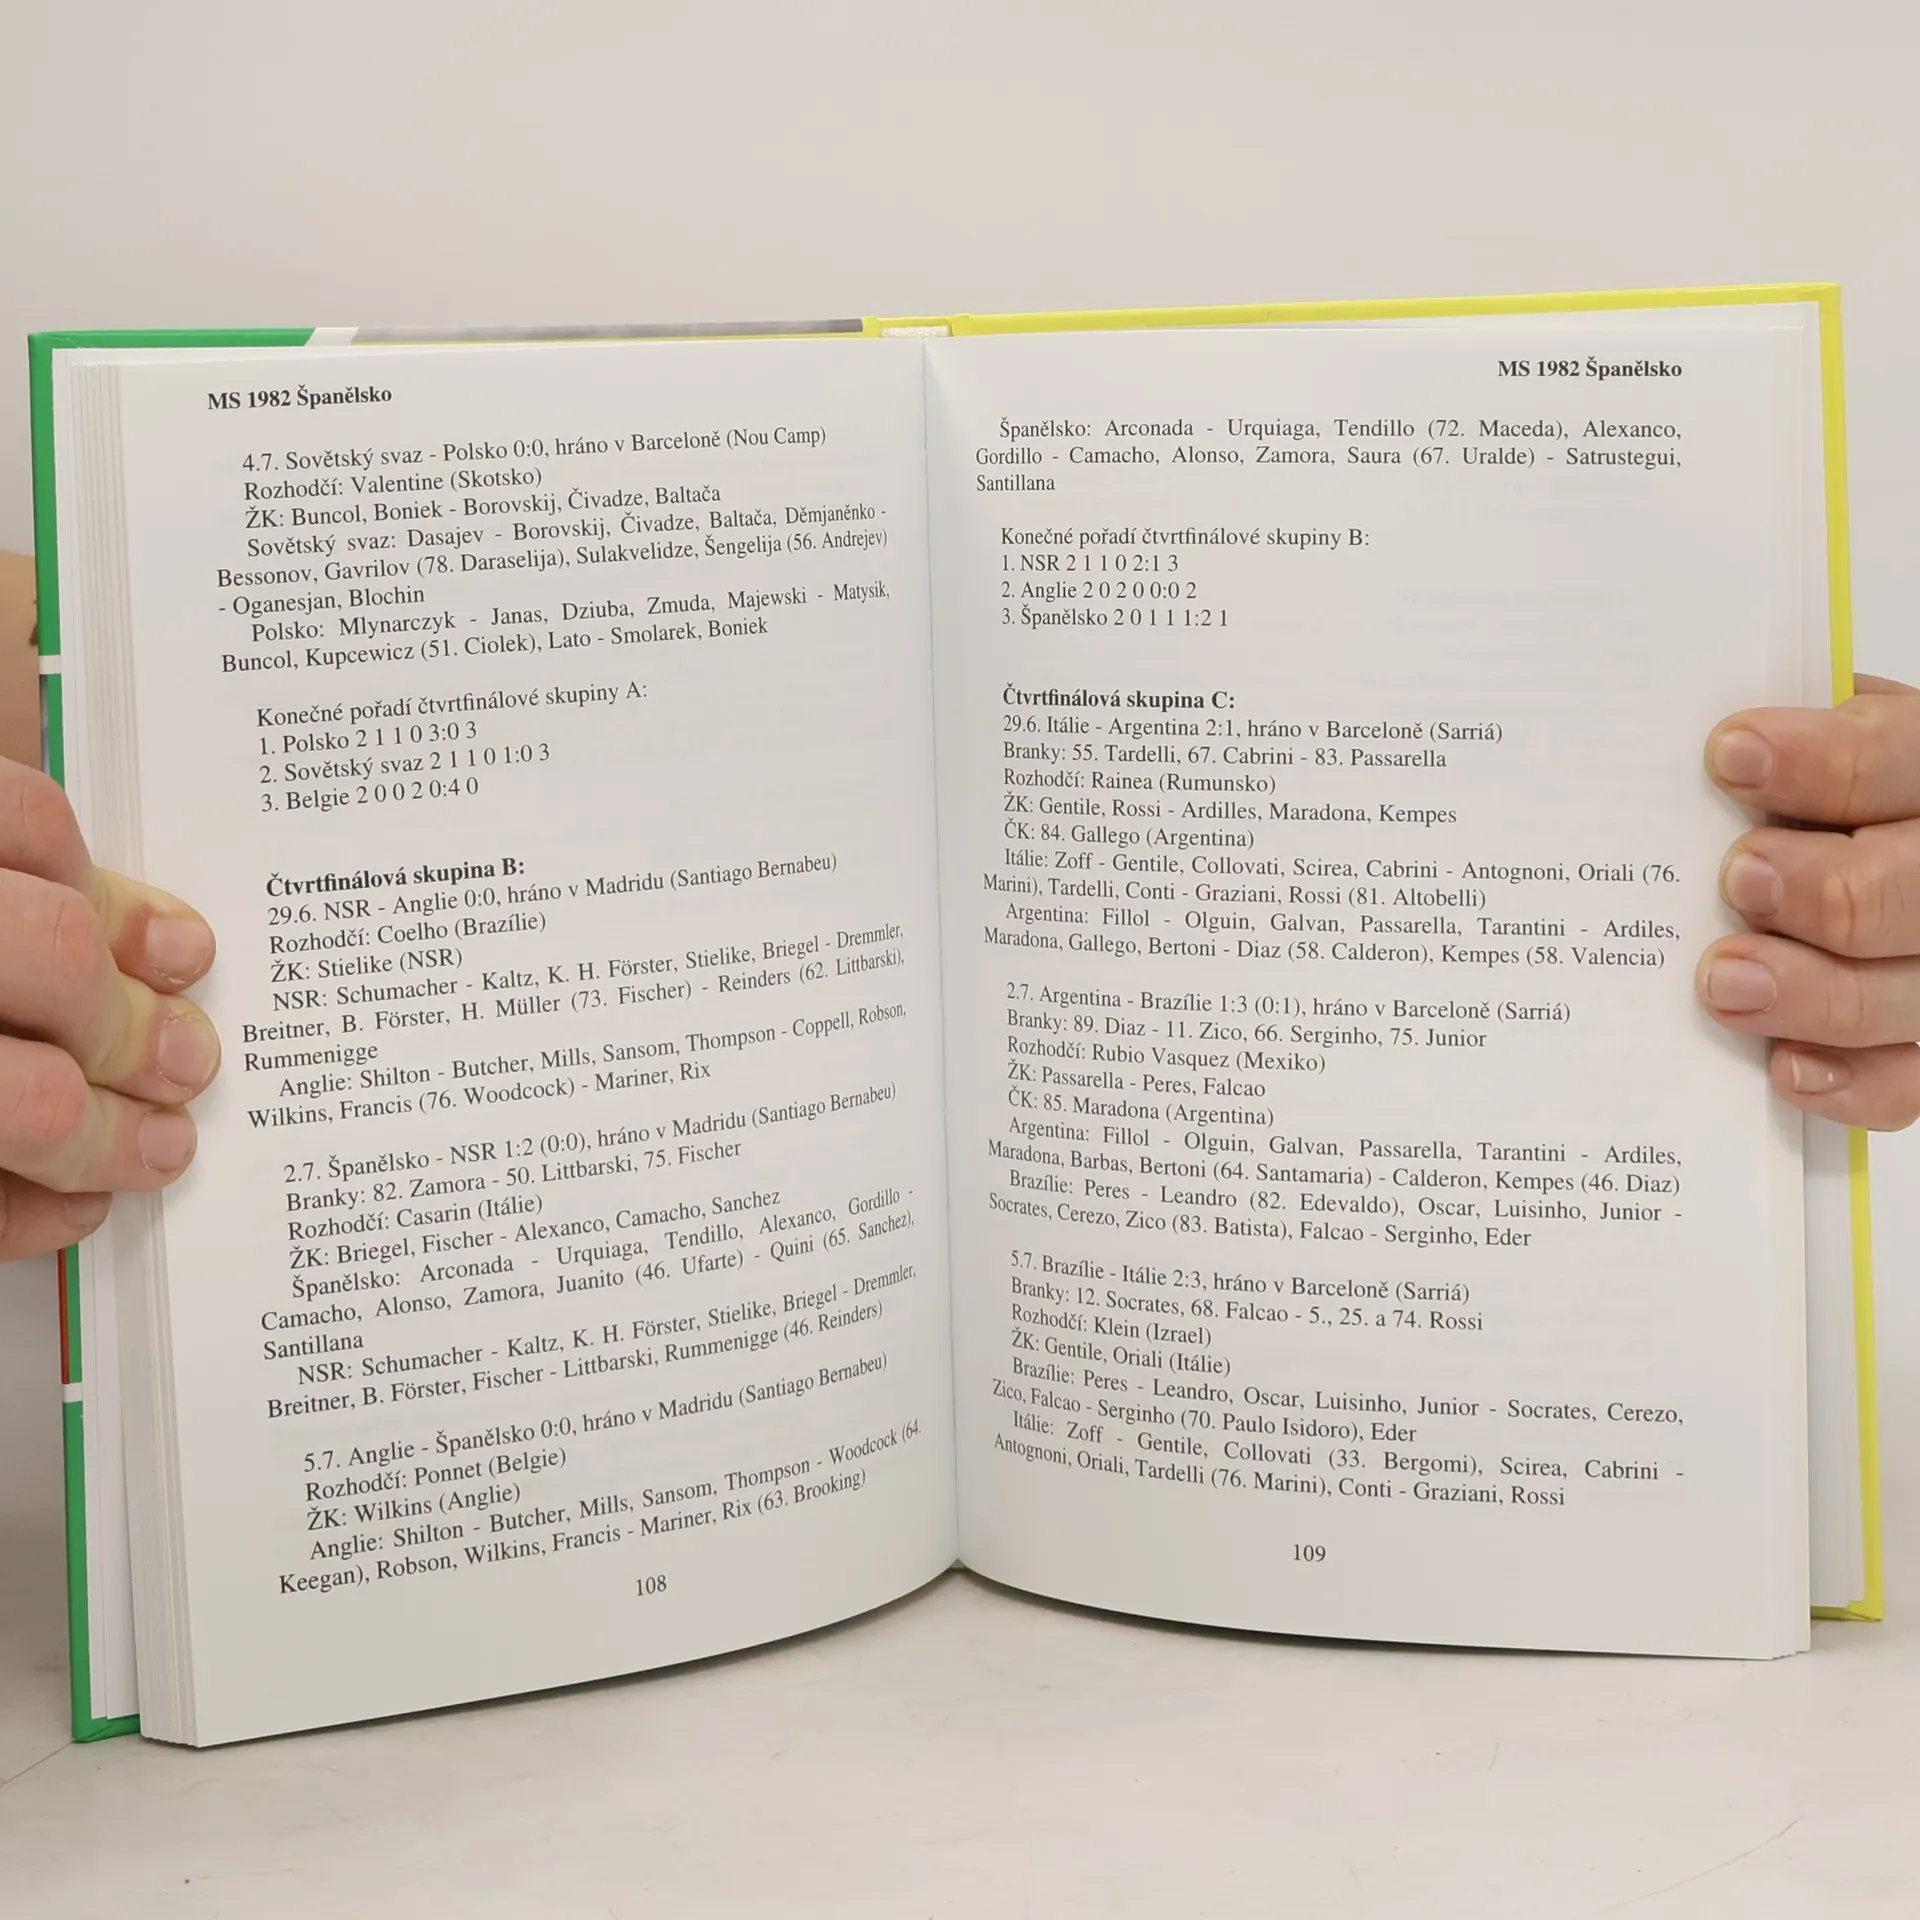 MS 1982 Španělsko
4.7. Sovětský svaz - Polsko 0:0, hráno v Barceloně (Nou Camp)
Rozhodčí: Valentine (Skotsko)
ŽK: Buncol, Boniek - Borovskij, Čivadze, Baltača
Sovětský svaz: Dasajev - Borovskij, Čivadze, Baltača, Děmjaněnko -
Bessonov, Gavrilov (78. Daraselija), Sulakvelidze, Šengelija (56. Andrejev)
- Oganesjan, Blochin
Polsko: Mlynarczyk - Janas, Dziuba, Zmuda, Majewski - Matysik,
Buncol, Kupcewicz (51. Ciolek), Lato - Smolarek, Boniek
Konečné pořadí čtvrtfinálové skupiny A:
1. Polsko 2 1 1 0 3:0 3
2. Sovětský svaz 2 1 1 0 1:0 3
3. Belgie 2 0 0 2 0:4 0
Čtvrtfinálová skupina B:
29.6. NSR - Anglie 0:0, hráno v Madridu (Santiago Bernabeu)
Rozhodčí: Coelho (Brazílie)
ŽK: Stielike (NSR)
NSR: Schumacher - Kaltz, K. H. Förster, Stielike, Briegel - Dremmler,
Breitner, B. Förster, H. Müller (73. Fischer) - Reinders (62. Littbarski),
Rummenigge
Anglie: Shilton - Butcher, Mills, Sansom, Thompson - Coppell, Robson,
Wilkins, Francis (76. Woodcock) - Mariner, Rix
2.7. Španělsko - NSR 1:2 (0:0), hráno v Madridu (Santiago Bernabeu)
Branky: 82. Zamora - 50. Littbarski, 75. Fischer
Rozhodčí: Casarin (Itálie)
ŽK: Briegel, Fischer - Alexanco, Camacho, Sanchez
Španělsko: Arconada - Urquiaga, Tendillo, Alexanco, Gordillo -
Camacho, Alonso, Zamora, Juanito (46. Ufarte) - Quini (65. Sanchez),
Santillana
NSR: Schumacher - Kaltz, K. H. Förster, Stielike, Briegel - Dremmler,
Breitner, B. Förster, Fischer - Littbarski, Rummenigge (46. Reinders)
5.7. Anglie - Španělsko 0:0, hráno v Madridu (Santiago Bernabeu)
Rozhodčí: Ponnet (Belgie)
ŽK: Wilkins (Anglie)
Anglie: Shilton - Butcher, Mills, Sansom, Thompson - Woodcock (64.
Keegan), Robson, Wilkins, Francis - Mariner, Rix (63. Brooking)
108
MS 1982 Španělsko
Španělsko: Arconada - Urquiaga, Tendillo (72. Maceda), Alexanco,
Gordillo - Camacho, Alonso, Zamora, Saura (67. Uralde) - Satrustegui,
Santillana
Konečné pořadí čtvrtfinálové skupiny B:
1. NSR 2 1 1 0 2:1 3
2. Anglie 2 0 2 0 0:0 2
3. Španělsko 2 0 1 1 1:2 1
Čtvrtfinálová skupina C:
29.6. Itálie - Argentina 2:1, hráno v Barceloně (Sarriá)
Branky: 55. Tardelli, 67. Cabrini - 83. Passarella
Rozhodčí: Rainea (Rumunsko)
ŽK: Gentile, Rossi - Ardilles, Maradona, Kempes
ČK: 84. Gallego (Argentina)
Itálie: Zoff - Gentile, Collovati, Scirea, Cabrini - Antognoni, Oriali (76.
Marini), Tardelli, Conti - Graziani, Rossi (81. Altobelli)
Argentina: Fillol - Olguin, Galvan, Passarella, Tarantini - Ardiles,
Maradona, Gallego, Bertoni - Diaz (58. Calderon), Kempes (58. Valencia)
2.7. Argentina - Brazílie 1:3 (0:1), hráno v Barceloně (Sarriá)
Branky: 89. Diaz - 11. Zico, 66. Serginho, 75. Junior
Rozhodčí: Rubio Vasquez (Mexiko)
ŽK: Passarella - Peres, Falcao
ČK: 85. Maradona (Argentina)
Argentina: Fillol - Olguin, Galvan, Passarella, Tarantini - Ardiles,
Maradona, Barbas, Bertoni (64. Santamaria) - Calderon, Kempes (46. Diaz)
Brazílie: Peres - Leandro (82. Edevaldo), Oscar, Luisinho, Junior -
Socrates, Cerezo, Zico (83. Batista), Falcao - Serginho, Eder
5.7. Brazílie - Itálie 2:3, hráno v Barceloně (Sarriá)
Branky: 12. Socrates, 68. Falcao - 5., 25. a 74. Rossi
Rozhodčí: Klein (Izrael)
ŽK: Gentile, Oriali (Itálie)
Brazílie: Peres - Leandro, Oscar, Luisinho, Junior - Socrates, Cerezo,
Zico, Falcao - Serginho (70. Paulo Isidoro), Eder
Itálie: Zoff - Gentile, Collovati (33. Bergomi), Scirea, Cabrini -
Antognoni, Oriali, Tardelli (76. Marini), Conti - Graziani, Rossi
109